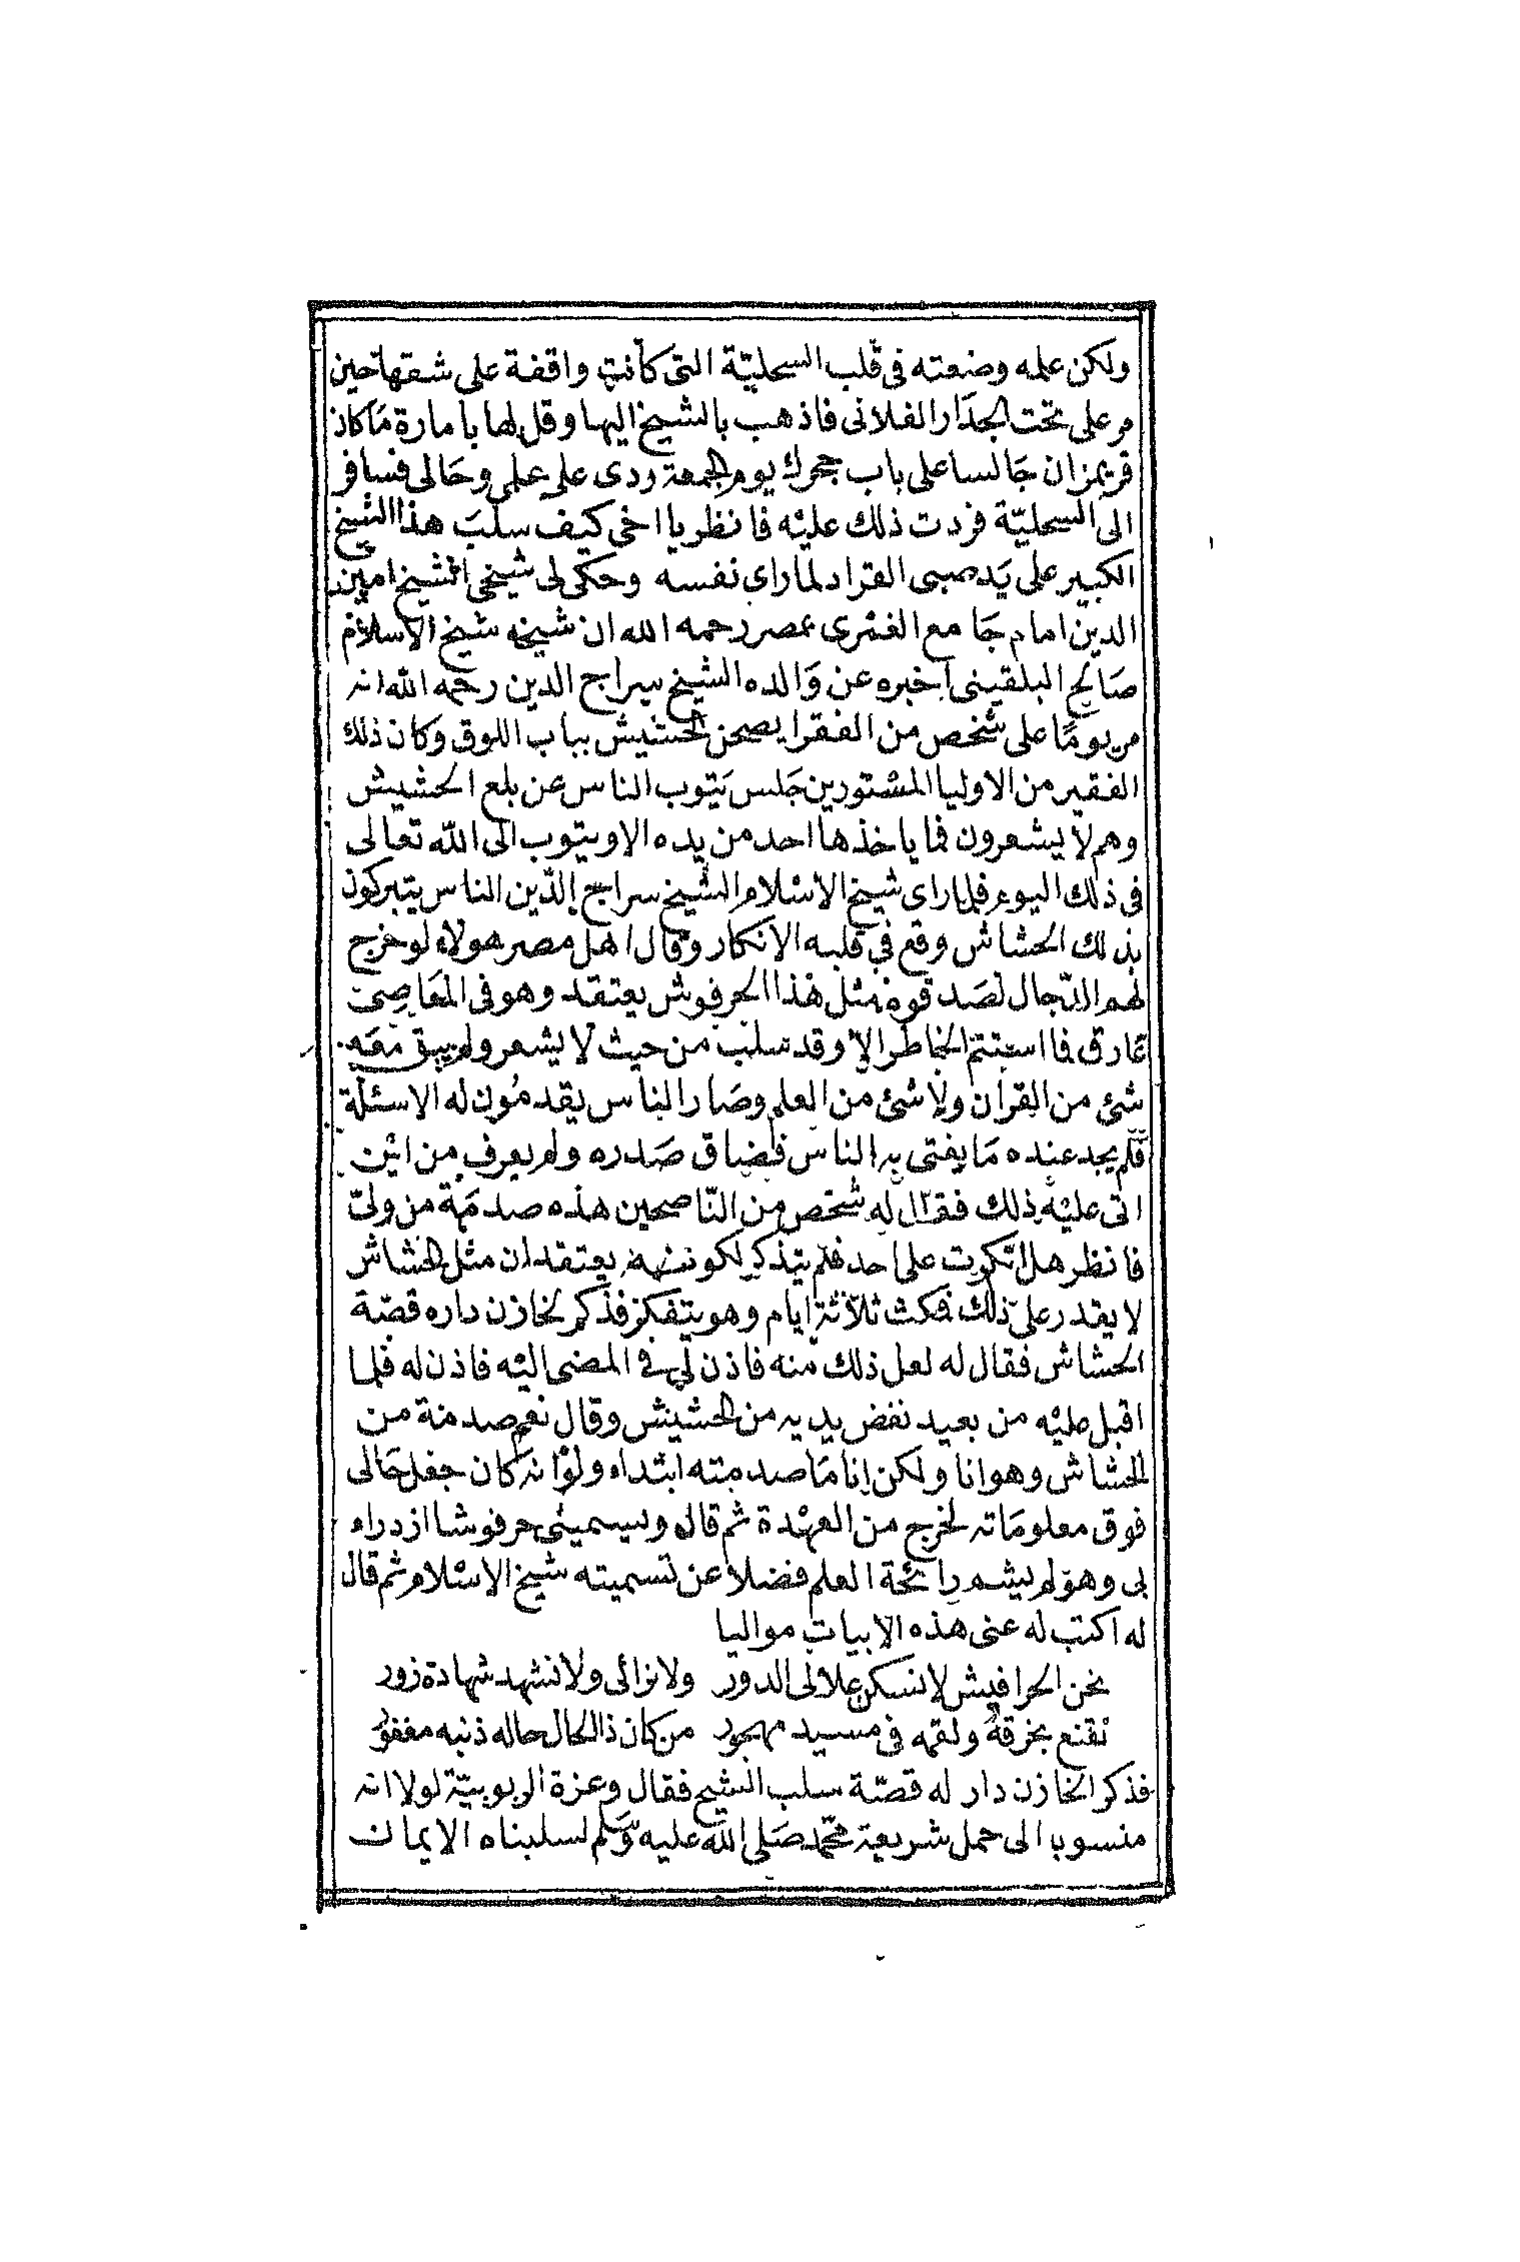 ولكن علمه وضعته في قلب السحلية التى كانت واقفة على شقها حين
مر على تحت الجدار الفلانى فاذهب بالشيخ اليها وقل لها بامارة ما كان
قريمزان جالسا على باب حجرك يوم الجمعة ردى على علمى وحالى فسافر
الى السحلية فردت ذلك عليه فانظر يا اخى كيف سلب هذا الشيخ
الكبير على يد صبى القراد لما راى نفسه وحكى لى شيخى الشيخ امين
الدين امام جامع الغمرى بمصر رحمه الله ان شيخه شيخ الاسلام
صالح البلقينى اخبره عن والده الشيخ سراج الدين رحمه الله انه
مر يوما على شخص من الفقرا يصحن الحشيش بباب اللوق وكان ذلك
الفقير من الاوليا المستورين جلس يتوب الناس عن بلع الحشيش
وهم لا يشعرون فما ياخذها احد من يده الا ويتوب الى الله تعالى
فى ذلك اليوم فلما راى شيخ الاسلام الشيخ سراج الدين الناس يتبركون
بذلك الحشاش وقع في قلبه الانكار وقال اهل مصر هولاء لو خرج
لهم الدجال لصدقوه مثل هذا الحرفوش يعتقد وهو فى المعاصى
غارق فما استتم الخاطر الا وقد سلب من حيث لا يشعر ولم يبق معه
شئ من القران ولا شئ من العلم وصار الناس يقدمون له الاسئلة
فلم يجد عنده ما يفتى به الناس فضاق صدره ولم يعرف من اين
اتى عليه ذلك فقال له شخص من الناصحين هذه صدمة من ولىّ
فانظر هل انكرت على احد فلم يتذكر لكونه يعتقد ان مثل الحشاش
لا يقدر على ذلك فمكث ثلاثة ايام وهو يتفكر فذكر لخازن داره قصة
الحشاش فقال له لعل ذلك منه فاذن لى في المضى اليه فاذن له فلما
اقبل عليه من بعيد نفض يديه من الحشيش وقال نعم صدمة من
الحشاش وهو انا ولكن انا ما صدمته ابتداء ولو انه كان جعل حالى
فوق معلوماته لخرج من العهدة ثم قال ويسمينى حرفوشا ازدراء
بى وهو لم يشم رائحة العلم فضلا عن تسميته شيخ الاسلام ثم قال
له اكتب له عنى هذه الابيات مواليا
نحن الحرافيش لا نسكن علالى الدور ولا نرائى ولا نشهد شهادة زور
نقنع بخرقة ولقمه فى مسيد مهجور من كان ذا الحال حاله ذنبه مغفور
فذكر الخازن دار له قصة سلب الشيخ فقال وعزة الربوبية لولا انه
منسوب الى حمل شريعة محمد صلى الله عليه وسلم لسلبناه الايمان